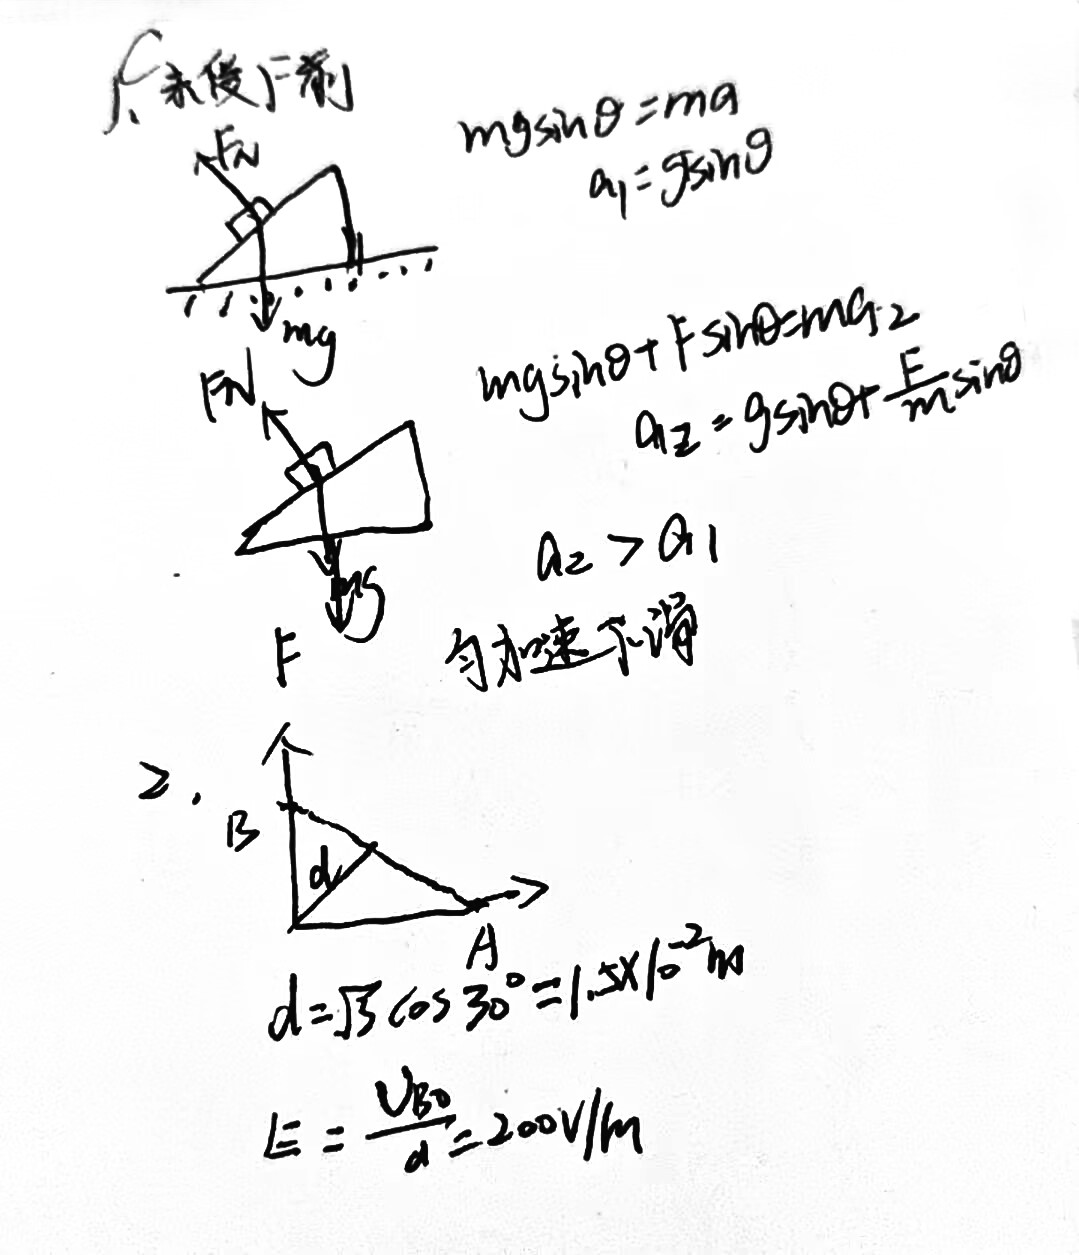 1. 未受F前
FN
mg
mgsinθ=ma
a₁=gsinθ
FN
mg
F
mgsinθ+Fsinθ=ma₂
a₂=gsinθ+\frac{F}{m}sinθ
a₂>a₁
匀加速下滑
2.
B
d
A
d=√3cos30°=1.5×10⁻²m
E=\frac{U_{BO}}{d}=200V/m